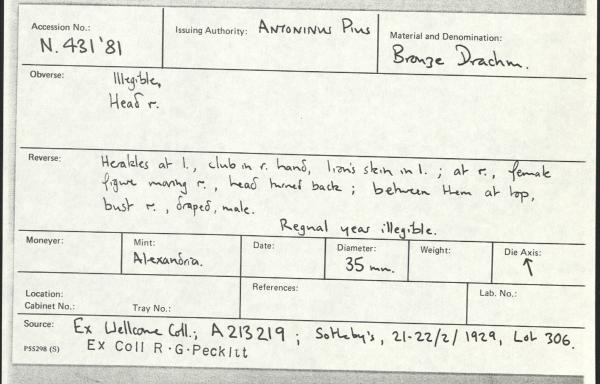 Accession No.: Issuing Authority: Antoninus Pius Material and Denomination:
N. 431 '81 Bronze Drachm.
Obverse: Illegible,
Head r.
Reverse: Herakles at l., club in r. hand, lion's skin in l. ; at r., female
figure moving r., head turned back ; between them at top,
bust r., draped, male.
Regnal year illegible.
Moneyer: Mint: Date: Diameter: Weight: Die Axis:
Alexandria. 35 mm. ↑
Location: References: Lab. No.:
Cabinet No.: Tray No.:
Source: Ex Wellcome Coll.; A 213219 ; Sotheby's, 21-22/2/1929, Lot 306.
P55298 (S) Ex Coll R.G.Peckitt